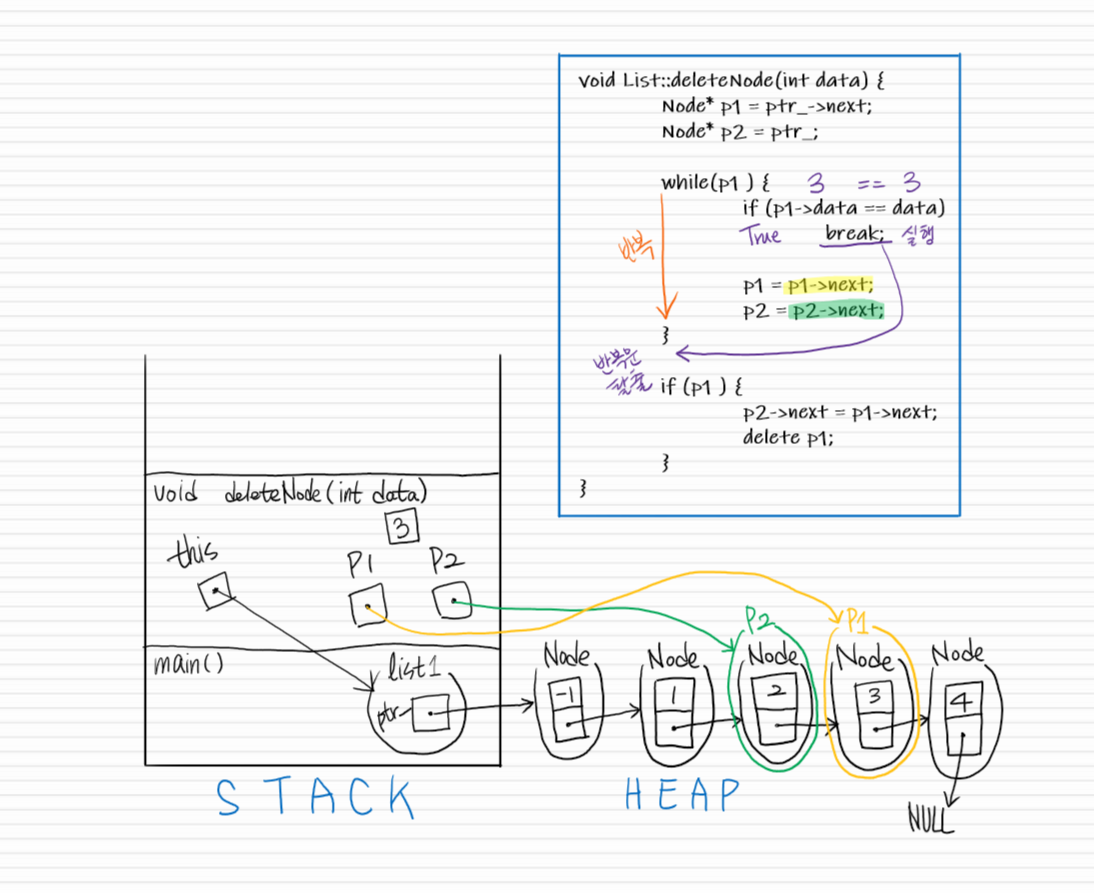 void List::deleteNode(int data) {
Node* p1 = ptr_->next;
Node* p2 = ptr_;
while(p1 ) { 3 == 3
if (p1->data == data)
True break; 실행
반복
p1 = p1->next;
p2 = p2->next;
}
반복문
탈출
if (p1 ) {
p2->next = p1->next;
delete p1;
}
}
void deleteNode(int data)
3
this
P1 P2
main()
list1
ptr_
P2 P1
Node Node Node Node Node
-1 1 2 3 4
NULL
STACK HEAP